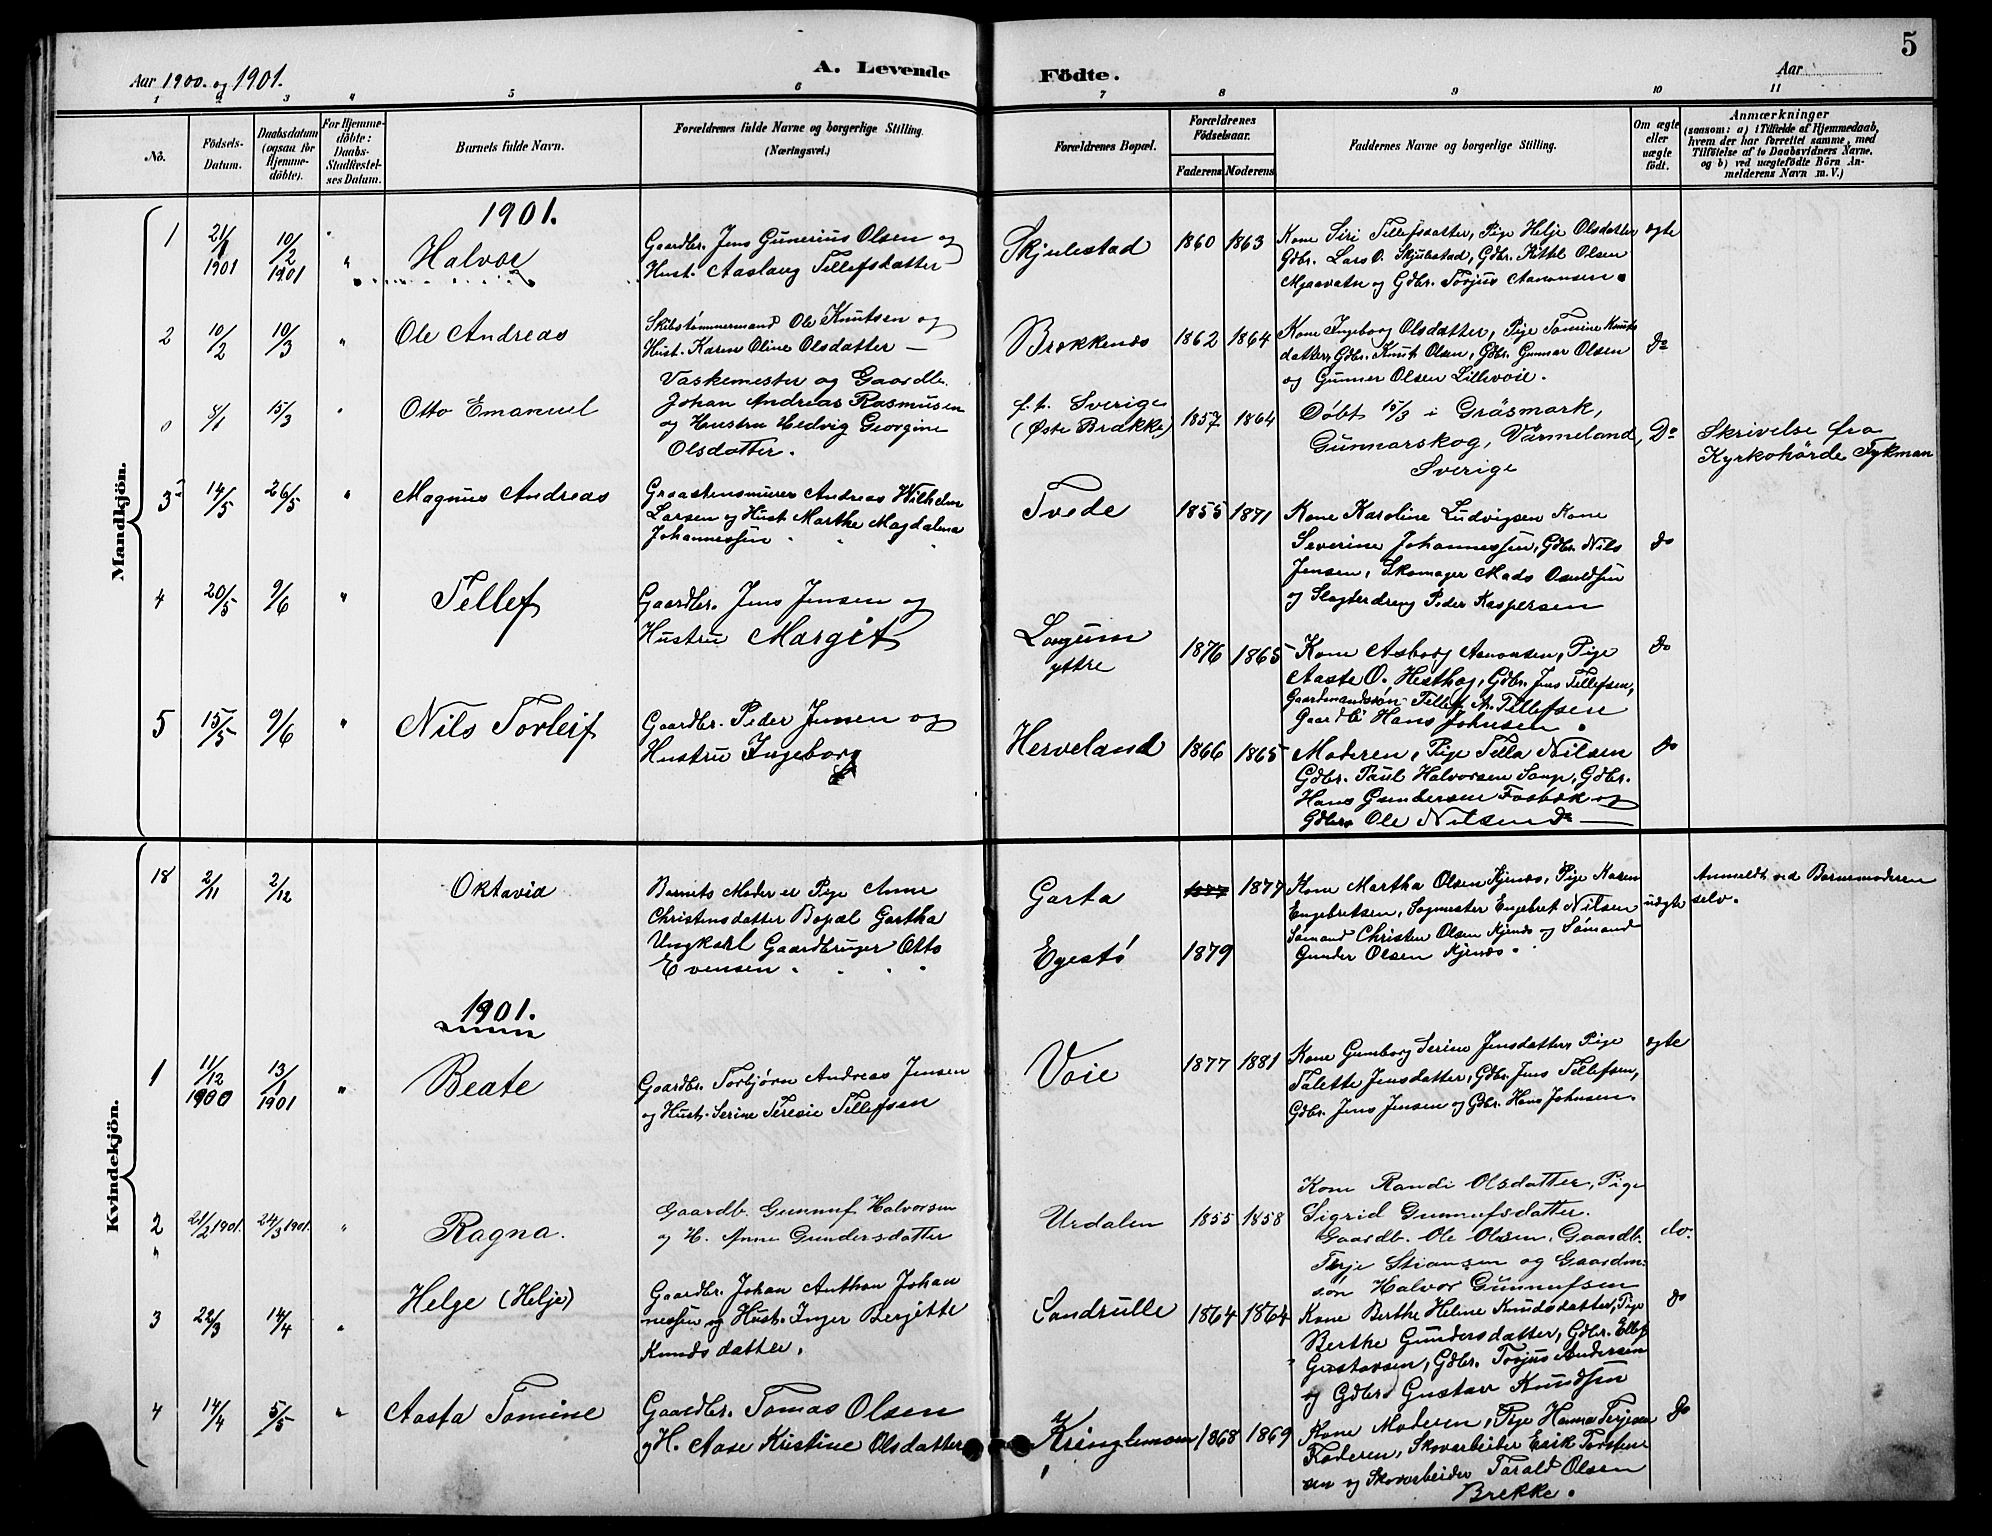 Aar 1900. og 1901.
A. Levende
Födte.
Aar
5
1 2 3 4 5 6 7 8 9 10 11
No.
Födsels-
Datum.
Daabsdatum
(ogsaa for
Hjemme-
döbte).
For Hjemme-
döbte:
Daabs-
Stadfæstel-
ses Datum.
Barnets fulde Navn.
Forældrenes fulde Navne og borgerlige Stilling.
(Næringsvei.)
Forældrenes Bopæl.
Forældrenes
Födselsaar.
Faderens Moderens
Faddernes Navne og borgerlige Stilling.
Om ægte
eller
uægte
födt.
Anmærkninger
(saasom: a) i Tilfælde af Hjemmedaab,
hvem der har forrettet samme, med
Tilföielse af to Daabsvidners Navne,
og b) ved uægtefödte Börn An-
melderens Navn m. V.)
Mandkjön.
1901.
1
21/1
1901
10/2
1901
"
Halvor
Gaardbr. Jens Gunerius Olsen og
Hust. Aaslaug Tellefsdatter
Skjulestad
1860 1863
Kone Siri Tellefsdatter, Pige Helje Olsdatter
Gdbr. Lars O. Skjulestad, Gdbr. Kittel Olsen
Mjaavatn og Gdbr. Torjus Aanonsen.
ægte
2
10/2
10/3
"
Ole Andreas
Skibstømmermand Ole Knutsen og
Hust. Karen Oline Olsdatter —
Brækkenæs
1862 1864
Kone Ingeborg Olsdatter, Pige Tomine Knuts
datter, Gdbr. Knut Olsen, Gdbr. Gunnar Olsen
og Gunner Olsen Lillevoie.
Do
0
8/1
15/3
"
Otto Emanuel
Vaskemester og Gaardb.
Johan Andreas Rasmusen
og Hustru Hedvig Georgine
Olsdatter.
f. t. Sverige
(Østre Brække)
1857 1864
Døbt 15/3 i Gräsmark,
Gunnarskog, Värmeland,
Sverige
Do
Skrivelse fra
Kyrkohörde Fykman
3
14/5
26/5
"
Magnus Andreas
Graastensmurer Andreas Wilhelm
Larsen og Hust. Marthe Magdalena
Johannessen
Tvede
1855 1871
Kone Karoline Ludvigsen Kone
Severine Johannessen, Gdbr. Nils
Jensen, Skomager Mads Osuldsen
og Slagterdreng Peder Kaspersen
do
4
20/5
9/6
"
Tellef
Gaardbr. Jens Jensen og
Hustru Margit
Langum
yttre
1876 1865
Kone Asborg Aanonsen, Pige
Aaste O. Hesthag, Gdbr. Jens Tellefsen,
Gaardmandssøn Tellef A. Tellefsen
Gaardb Hans Johnsen.
do
5
15/5
9/6
"
Nils Torleif
Gaardbr. Peder Jensen og
Hustru Ingeborg
Herveland
1866 1865
Moderen, Pige Tella Nilsen
Gdbr. Paul Halvorsen Songe, Gdbr.
Hans Gundersen Fosbæk og
Gdbr. Ole Nilsen Do
do
Kvindekjön.
18
2/11
2/12
Oktavia
Barnets Moder er Pige Anne
Christensdatter Bopæl Gartha
Ungkarl Gaardbruger Otto
Evensen
Garta
Egestø
1877 1877
1879
Kone Martha Olsen Kjenæs, Pige Karen
Engebretsen, Sagmester Engebret Nilsen
Sømand Christen Olsen Kjenæs og Sømand
Gunder Olsen Kjenæs.
uægte
Anmeldt ved Barnemoderen
selv.
1901.
1
11/12
1900
13/1
1901
"
Beate
Gaardbr. Torbjørn Andreas Jensen
og Hust. Serine Teresie Tellefsen
Voie
1877 1881
Kone Gunborg Serine Jensdatter, Pige
Talette Jensdatter, Gdbr. Jens Tellefsen,
Gdbr. Jens Jensen og Gdbr. Hans Johnsen.
ægte
2
"
21/2 1901.
24/3 1901.
"
Ragna.
Gaardb. Gunnuf Halvorsen
og H. Anne Gundersdatter
Urdalen
1855 1858
Kone Randi Olsdatter, Pige
Sigrid Gunnufsdatter.
Gaardb. Ole Olsen, Gaardb.
Terje Stiansen og Gaardm.
søn Halvor Gunnufsen
do.
3
22/3
14/4
"
Helge (Helje)
Gaardbr. Johan Anthon Johan
nessen og Hust. Inger Bergitte
Knudsdatter.
Sandrulle
1864 1864
Kone Berthe Helene Knudsdatter, Pige
Berthe Gundersdatter, Gdbr. Ellef
Gustavsen, Gdbr. Torjus Andersen
og Gdbr Gustav Knudsen
do
4
14/4
5/5
"
Aasta Tomine
Gaardbr. Tomas Olsen
og H. Aase Kristine Olsdatter
Kringlemoen
1868 1869
Kone Moderen, Pige Hanna Terjesen
Faderen, Skovarbeider Erik Torsten
sen og Skovarbeider Tarald Olsen
Brekke.
do